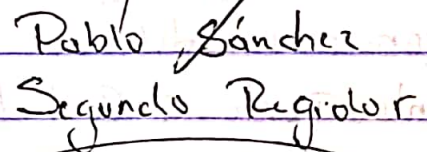 Pablo Sánchez
Segundo Regidor